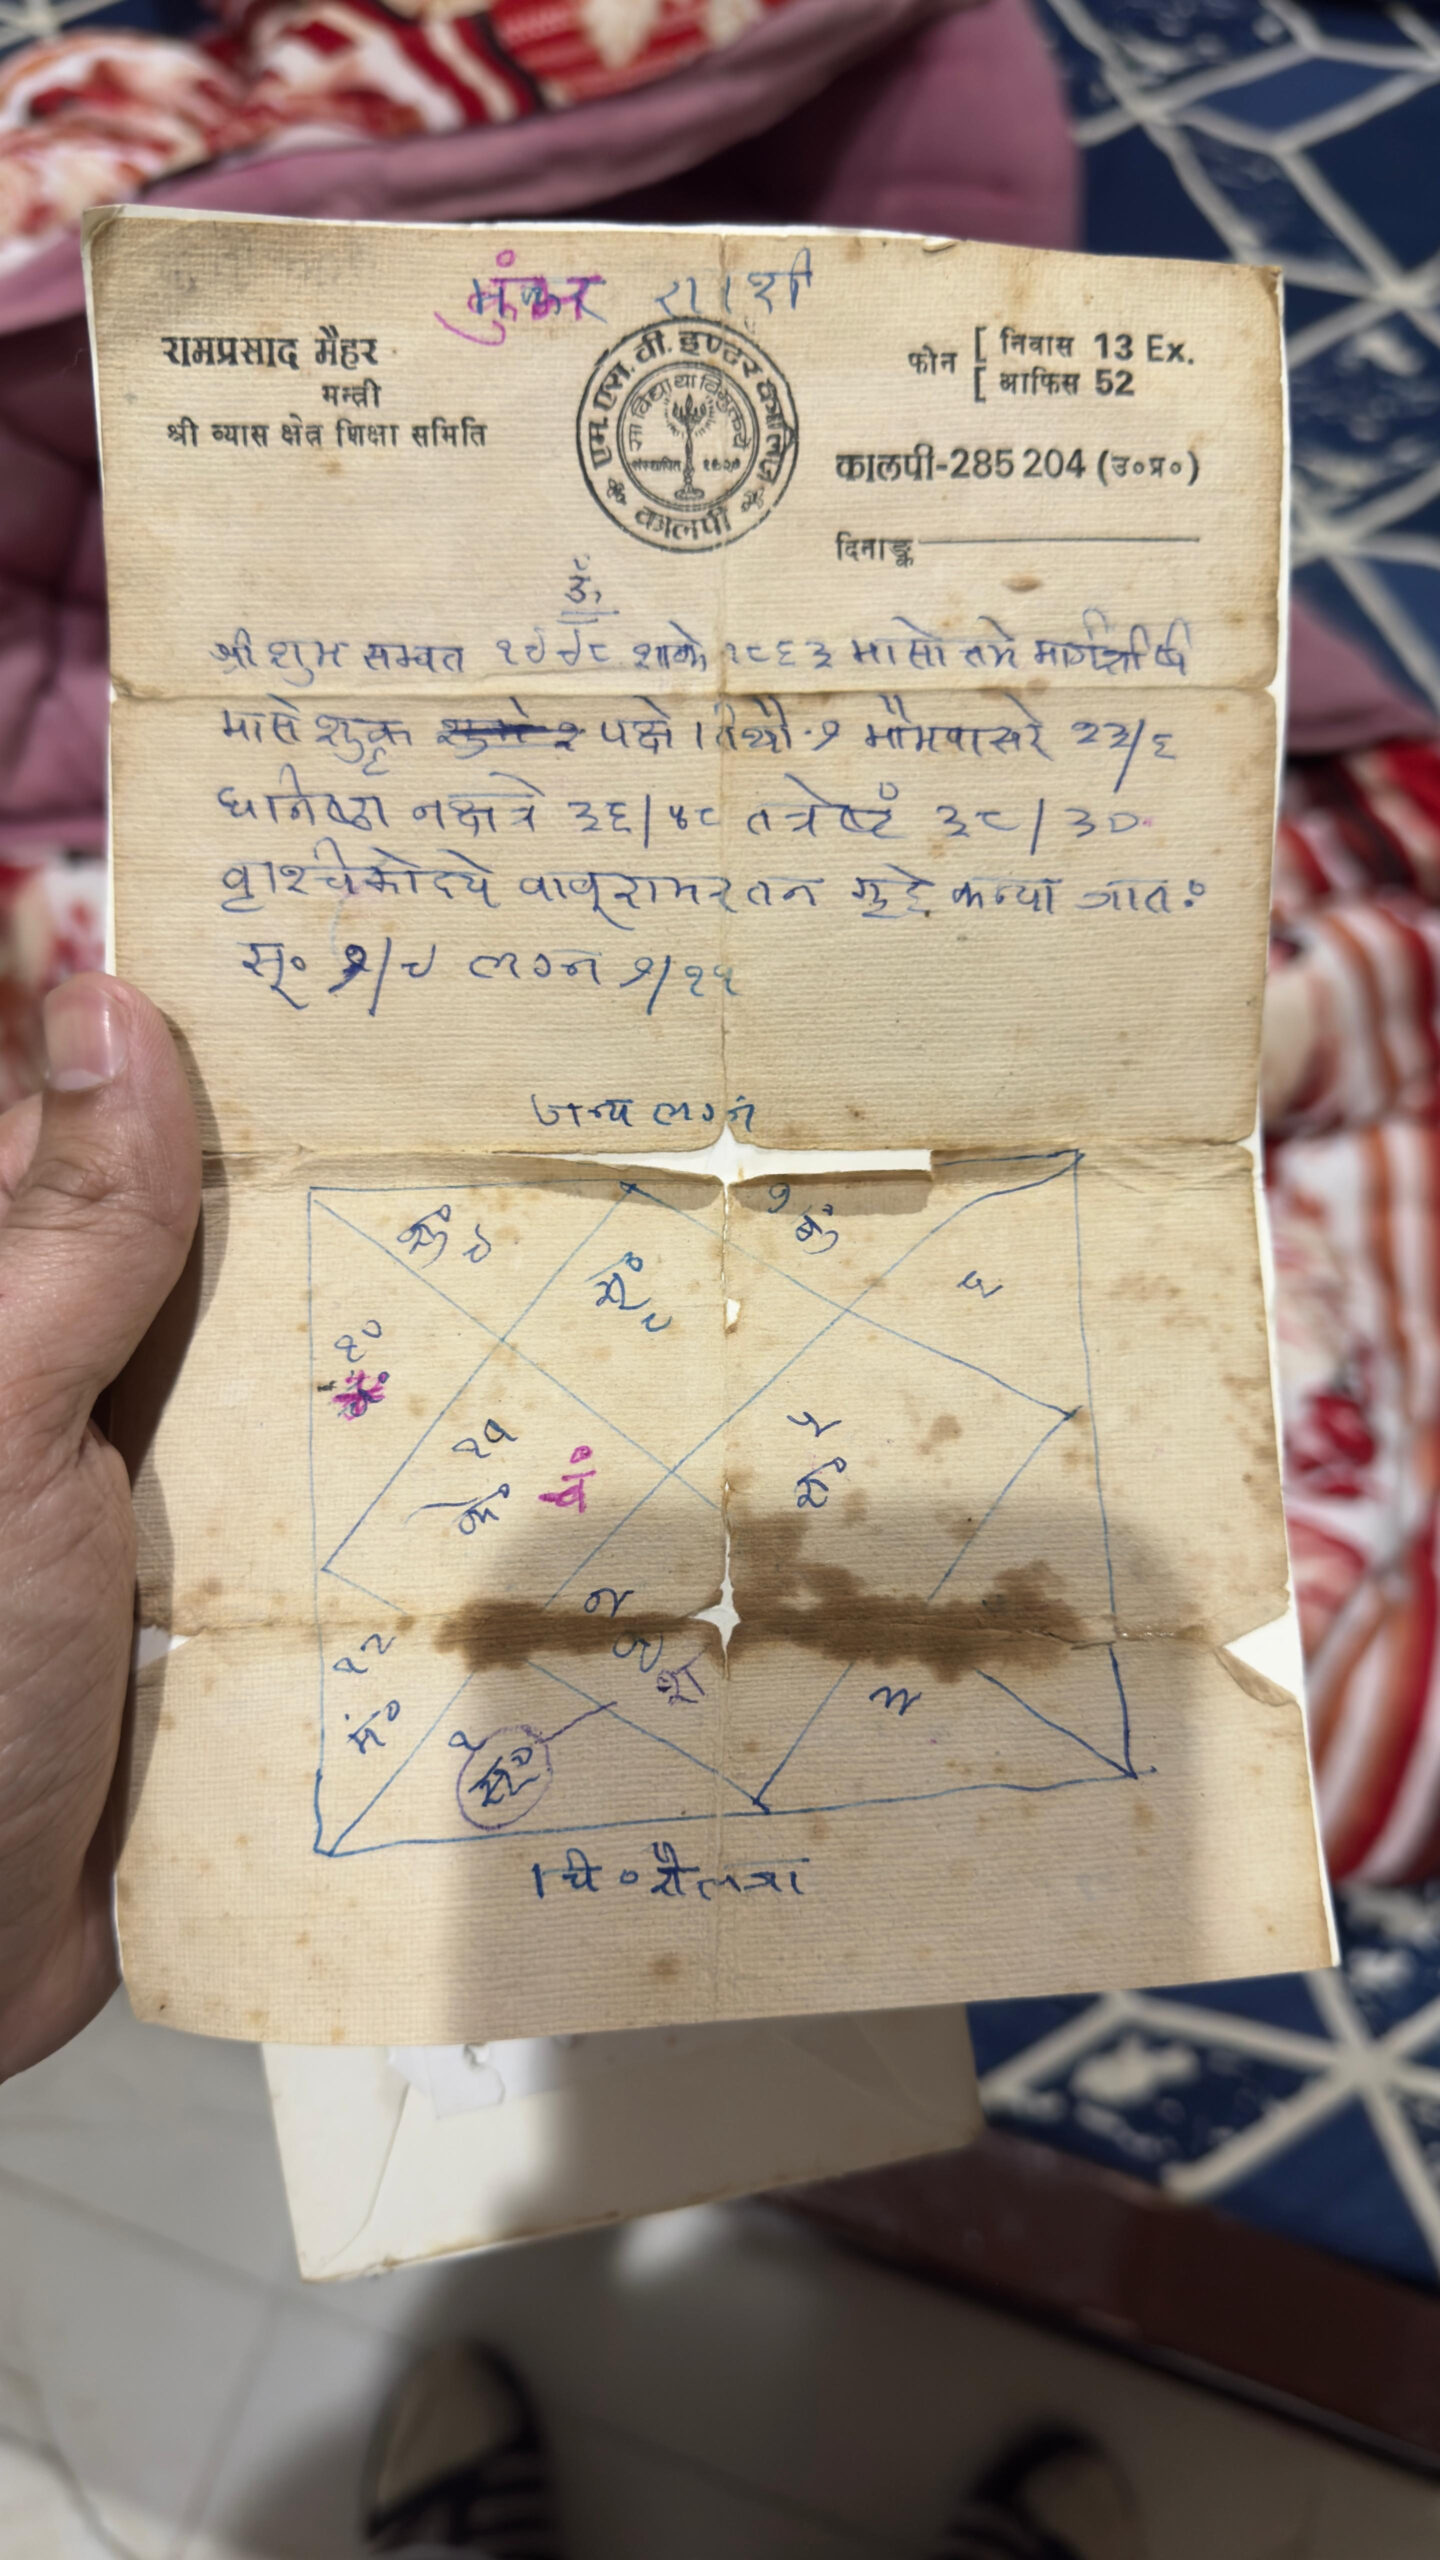 कुंभ राशी
रामप्रसाद मैहर
मन्त्री
श्री व्यास क्षेत्र शिक्षा समिति
एम. एस. वी. इण्टर कालिज
सा विद्या या विमुक्तये
संस्थापित
कालपी
फोन [ निवास 13 Ex.
[ आफिस 52
कालपी-285 204 (उ०प्र०)
दिनाङ्क
ॐ
श्री शुभ सम्वत १९९८ शाके १८६३ मासोतमे मार्गशीर्ष
मासे शुक्ल पक्षे तिथौ ७ भौमवासरे २३/६
धनिष्ठा नक्षत्रे ३६/४८ तत्रेष्टं ३८/३०
वृश्चिकोदये वावूरामरतन गृहे कन्या जात:
सू० ७/८ लग्न ७/२५
जन्म लग्नं
शु० ९
सू० ८
७ बु०
६
१०
११
के०
चं०
५
रा०
१२
मं०
२
वृ
श
१
३
चि० शैलजा